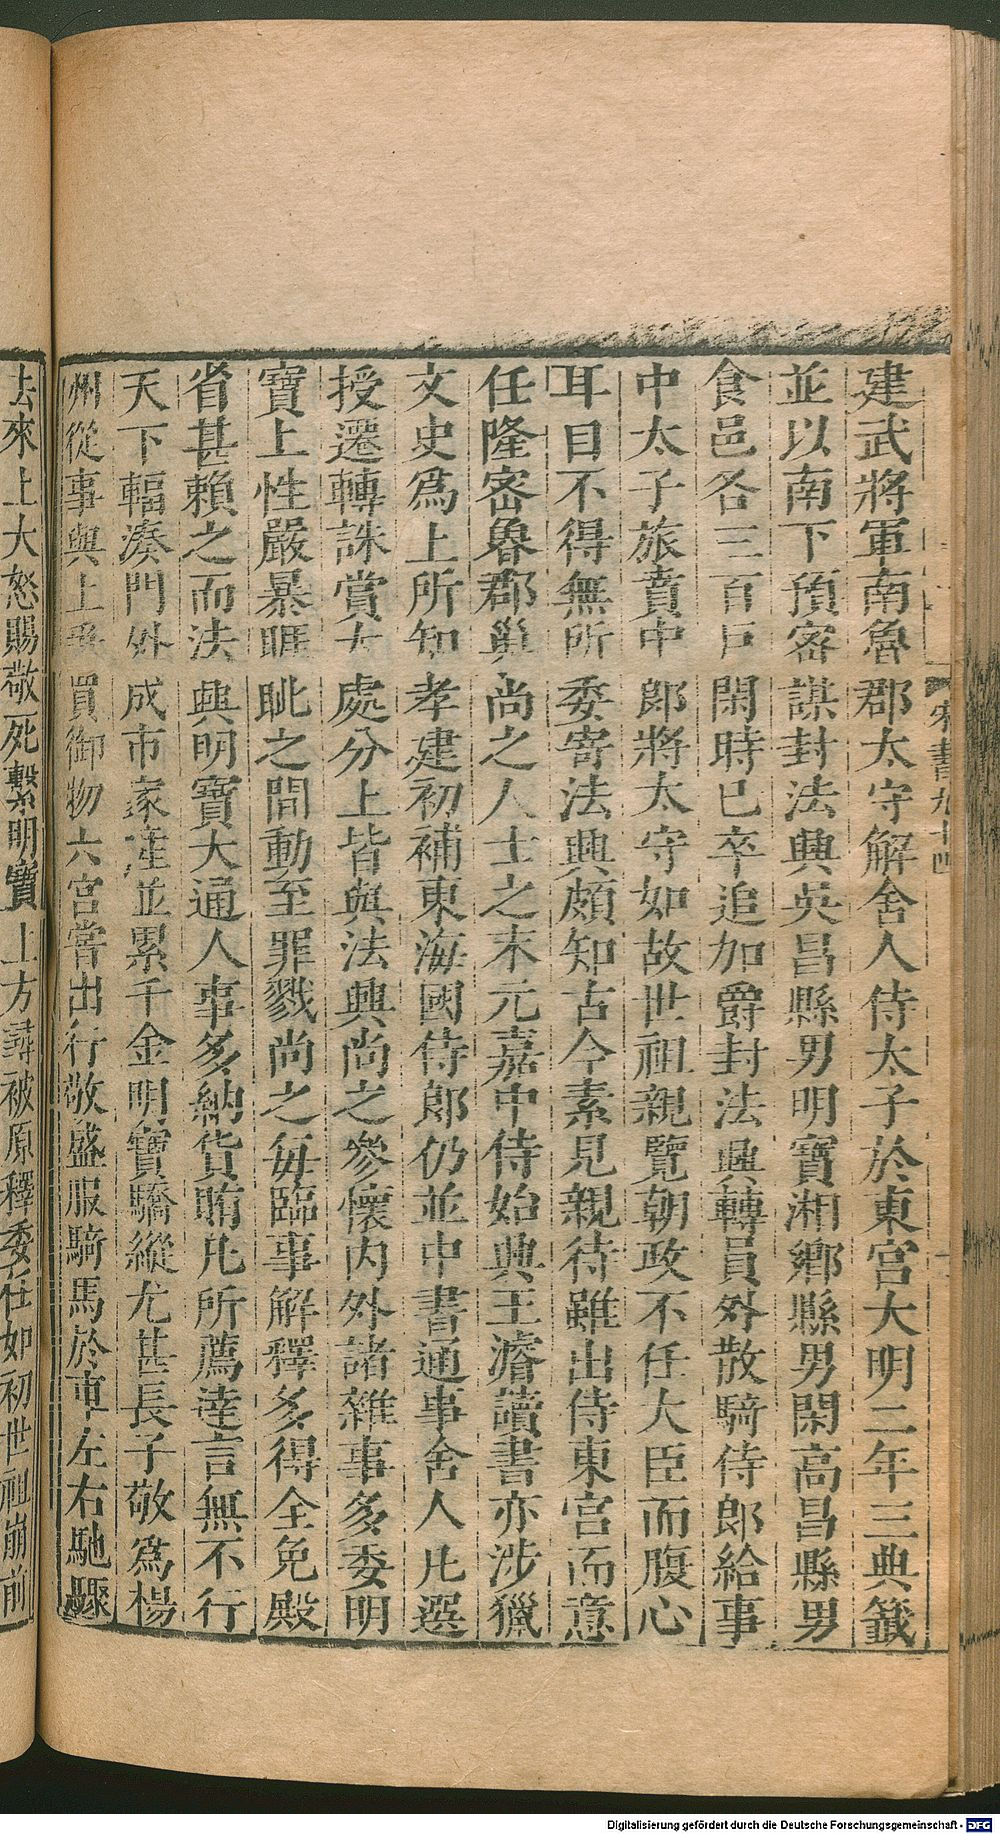 宋書九十四
建武將軍南魯郡太守解舍人侍太子於東宮大明二年三典籖
並以南下預密謀封法興吳昌縣男明寶湘鄉縣男閑高昌縣男
食邑各三百戶閑時已卒追加爵封法興轉員外散騎侍郎給事
中太子旅賁中郎將太守如故世祖親覽朝政不任大臣而腹心
耳目不得無所委寄法興頗知古今素見親待雖出侍東宮而意
任隆密魯郡巢尚之人士之末元嘉中侍始興王濬讀書亦涉獵
文史爲上所知孝建初補東海國侍郎仍並中書通事舍人凡選
授遷轉誅賞大處分上皆與法興尚之參懷內外諸雜事多委明
寶上性嚴暴睚眦之間動至罪戮尚之每臨事解釋多得全免殿
省甚賴之而法興明寶大通人事多納貨賄凡所薦達言無不行
天下輻湊門外成市家產並累千金明寶驕縱尤甚長子敬爲楊
州從事與上爭買御物六宮嘗出行敬盛服騎馬於車左右馳驟
去來上大怒賜敬死繫明寶上方尋被原釋委任如初世祖崩前
Digitalisierung gefördert durch die Deutsche Forschungsgemeinschaft - DFG